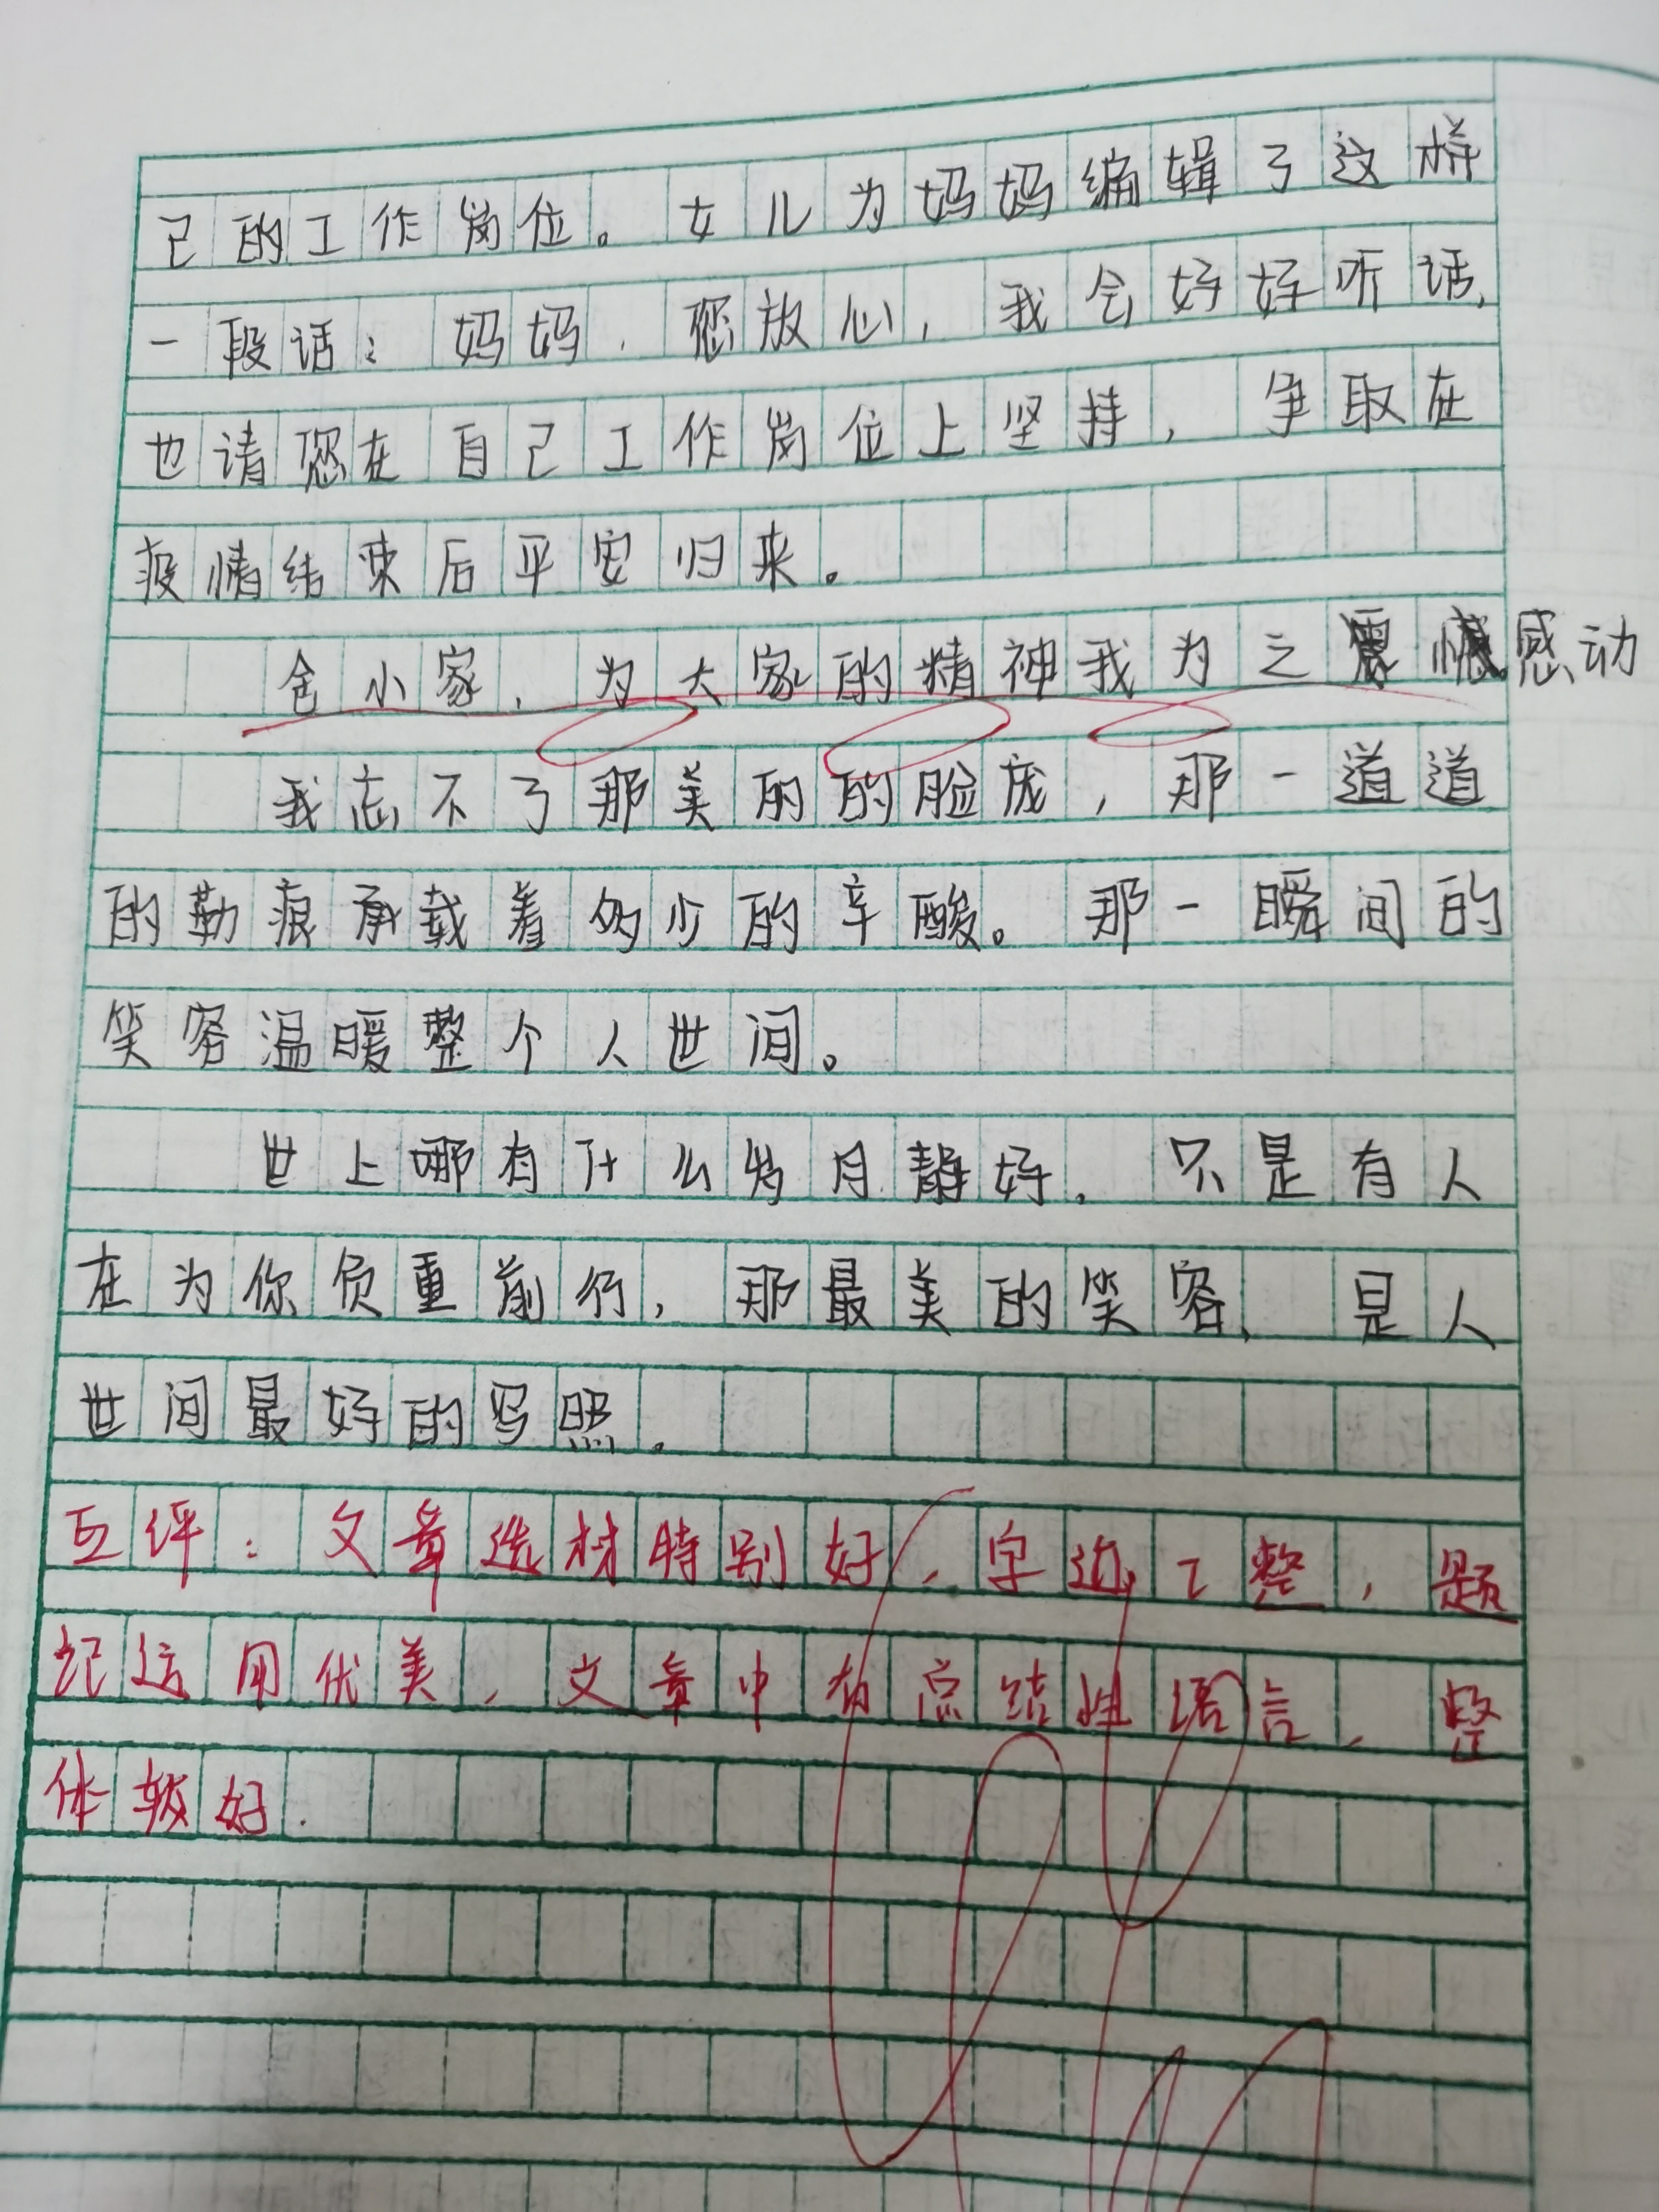 己的工作岗位。女儿为妈妈编辑了这样
一段话：妈妈，您放心，我会好好听话，
也请您在自己工作岗位上坚持，争取在
疫情结束后平安归来。
舍小家，为大家的精神我为之震憾感动
我忘不了那美的的脸庞，那一道道
的勒痕承载着多少的辛酸。那一瞬间的
笑容温暖整个人世间。
世上哪有什么岁月静好，只是有人
在为你负重前行，那最美的笑容，是人
世间最好的写照。
互评：文章选材特别好，字迹工整，题
记运用优美，文章中有总结性语言，整
体较好.